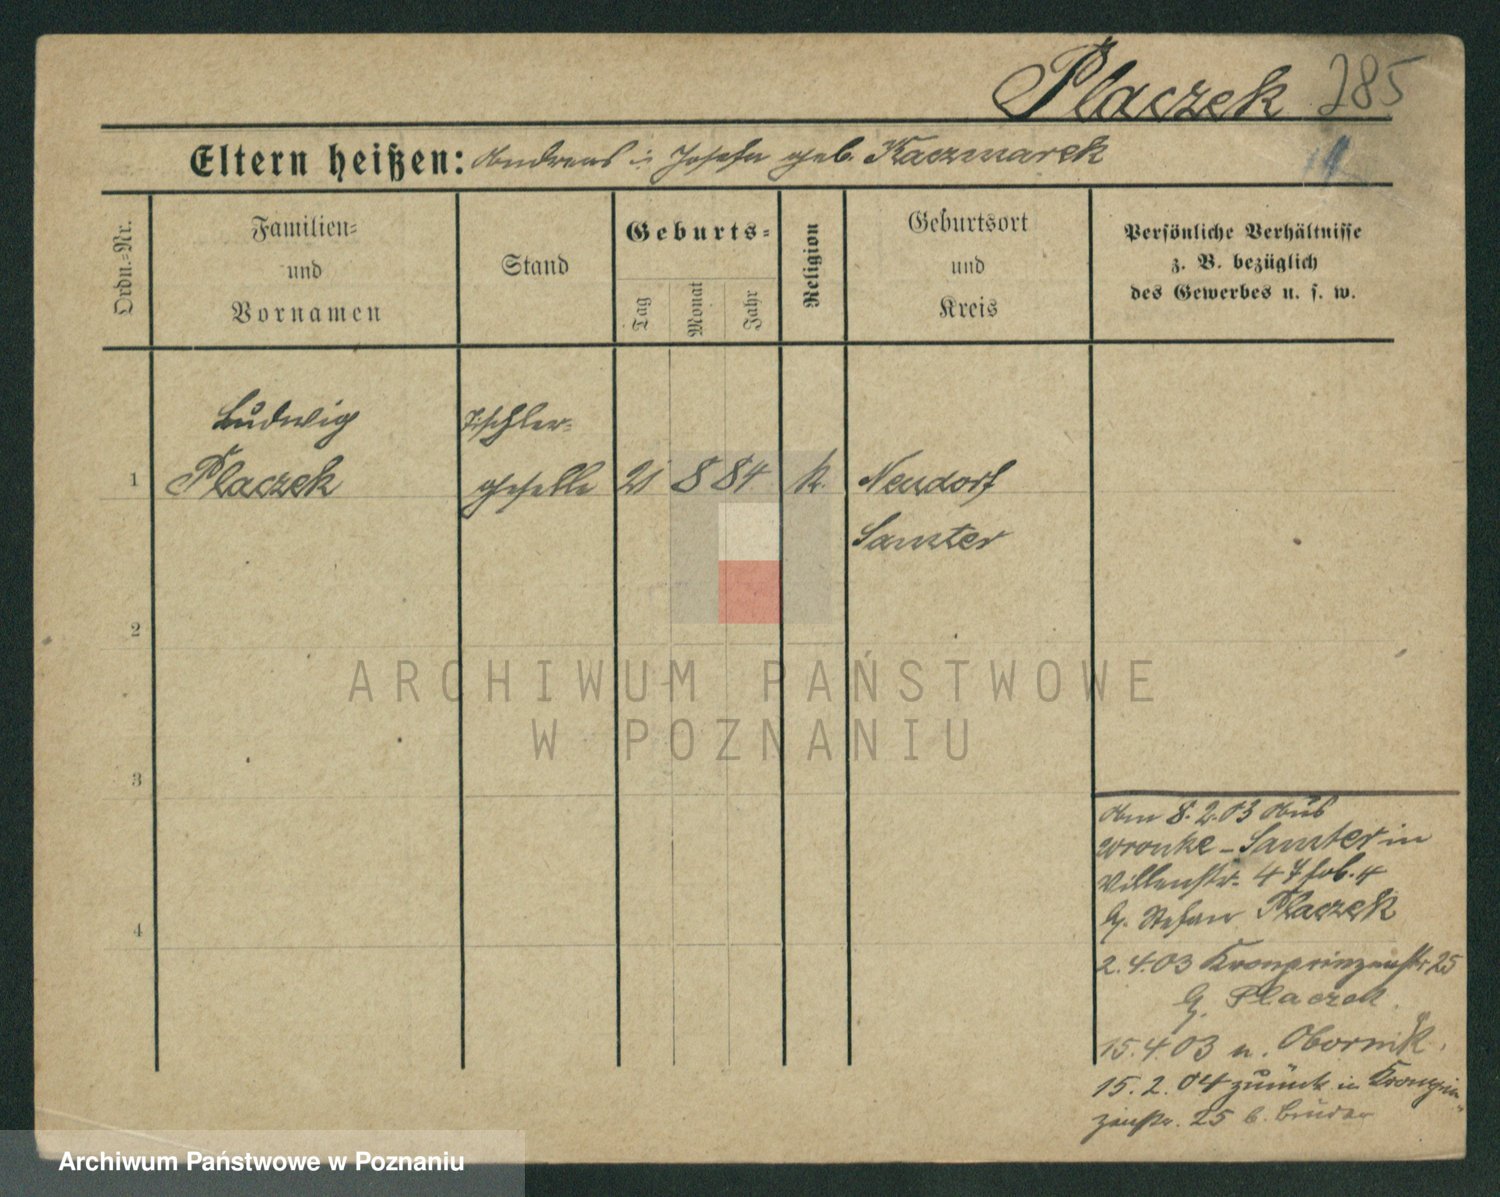 Placzek 285
Eltern heißen: Andreas u. Josefa geb. Kaczmarek
Ordn.-Nr.
Familien-
und
Vornamen
Stand
Geburts-
Tag
Monat
Jahr
Religion
Geburtsort
und
Kreis
Persönliche Verhältnisse
z. B. bezüglich
des Gewerbes u. s. w.
Ludwig
Placzek
Tischler-
geselle
1
21 8 84 k.
Neudorf
Samter
2
3
4
ARCHIWUM PAŃSTWOWE
W POZNANIU
Am 8.2.03 Aus
Wronke - Samter in
Villenstr. 4
b. Stefan Placzek
2.4.03 Kronprinzenstr 25
b. Placzek
15.4.03 n. Obornik.
15.2.04 zurück in Kronprin-
zenstr. 25 b. Bruder
Archiwum Państwowe w Poznaniu